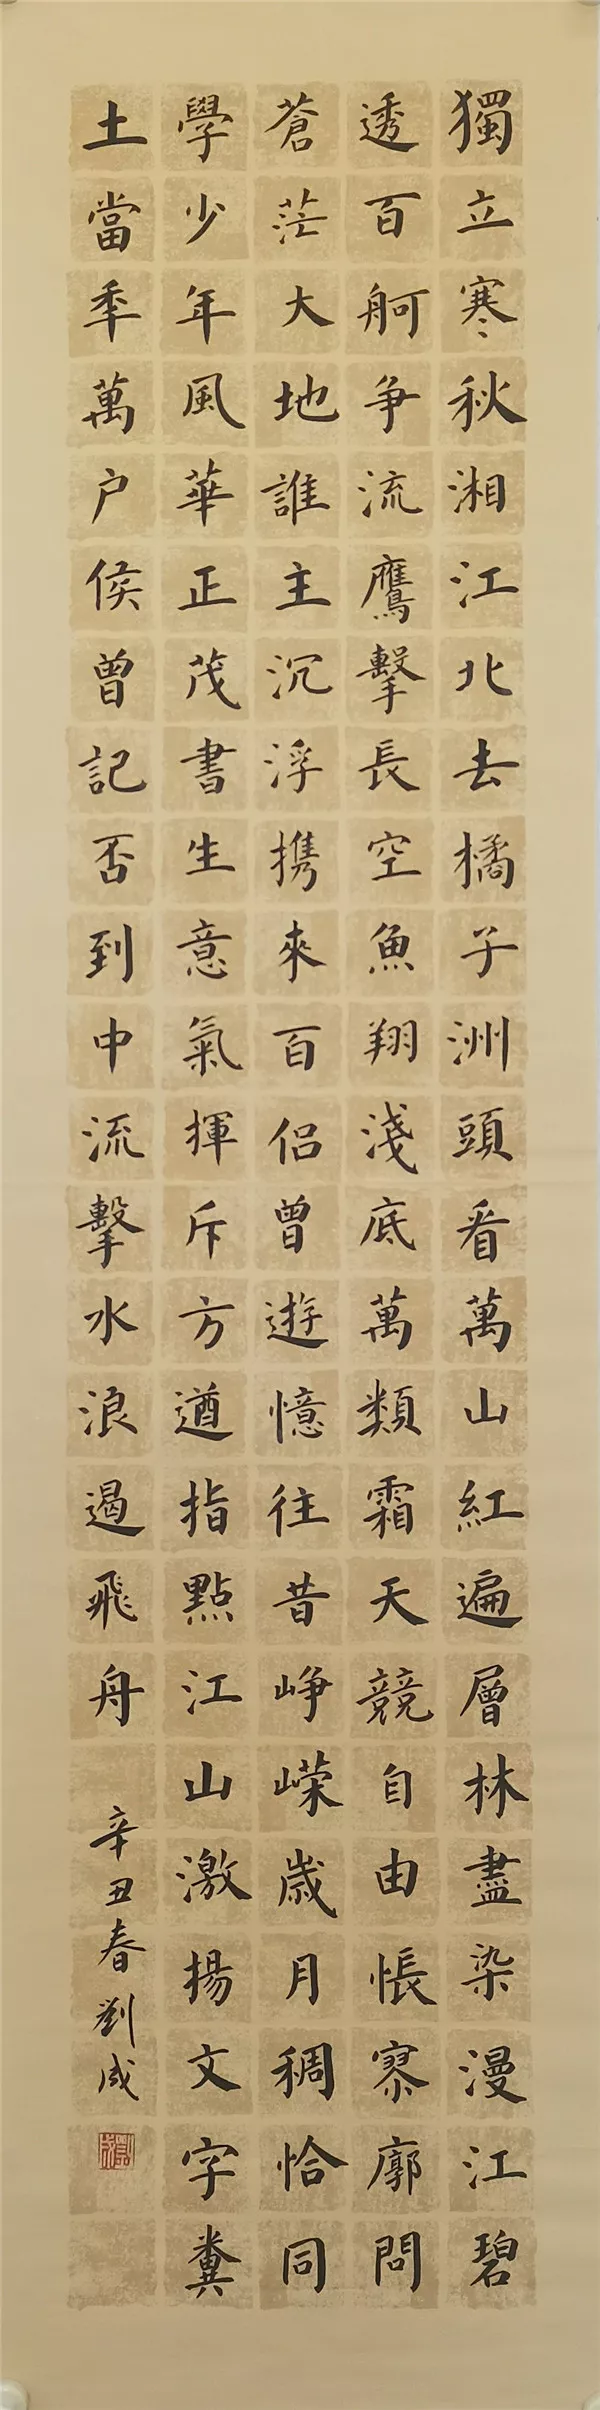 獨立寒秋湘江北去橘子洲頭看萬山紅遍層林盡染漫江碧
透百舸争流鷹擊長空魚翔淺底萬類霜天競自由悵寥廓問
蒼茫大地誰主沉浮攜來百侣曾遊憶往昔崢嶸歲月稠恰同
學少年風華正茂書生意氣揮斥方遒指點江山激揚文字糞
土當年萬户侯曾記否到中流擊水浪遏飛舟
辛丑春劉成